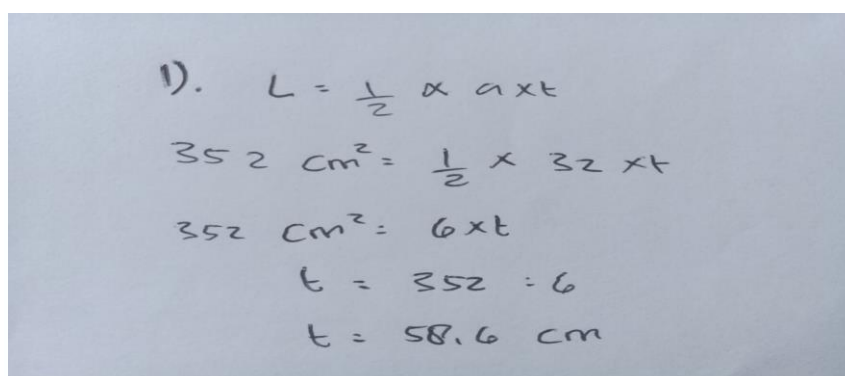 1). L = 1/2 x a x t
352 cm² = 1/2 x 32 x t
352 cm² = 6 x t
t = 352 : 6
t = 58.6 cm